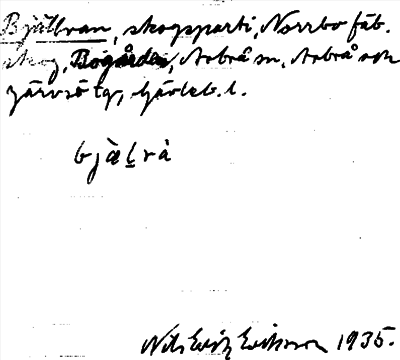 Bjällran, skogsparti, Norrbo fäb.
skog, Bogården, Arbrå sn, Arbrå och
Järvsö tg, Gävleb. l.
bjälrå
Nils Erik Eriksson 1935.